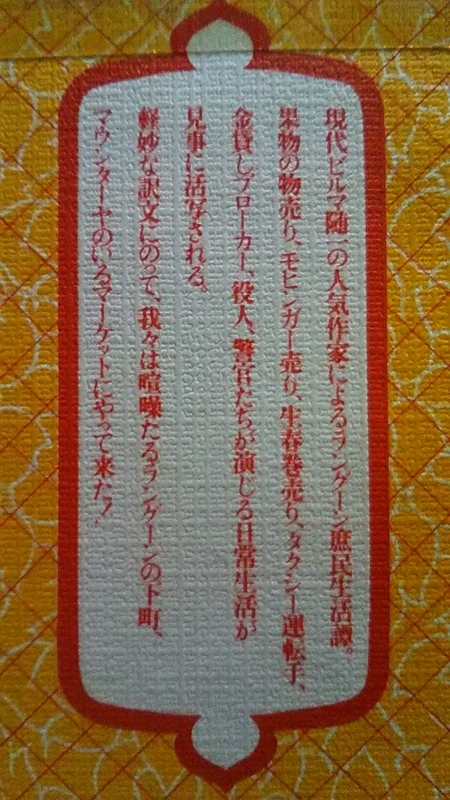 現代ビルマ随一の人気作家によるラングーン庶民生活譚。
果物の物売り、モヒンガー売り、生春巻売り、タクシー運転手、
金貸しブローカー、役人、警官たちが演じる日常生活が
見事に活写される。
軽妙な訳文にのって、我々は喧噪たるラングーンの下町、
マウンターヤのいるマーケットにやって来た！